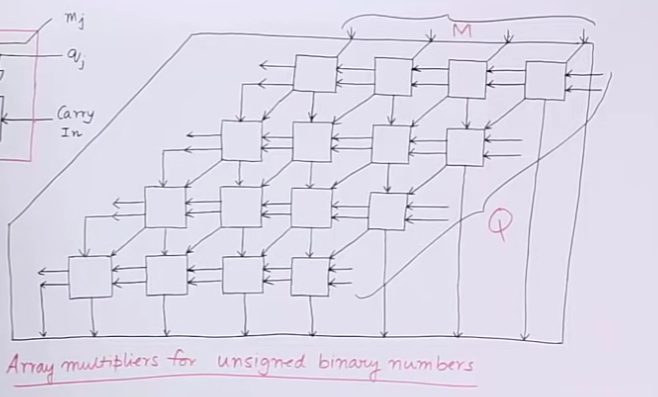 mj
qj
Carry
In
M
Q
Array multipliers for unsigned binary numbers